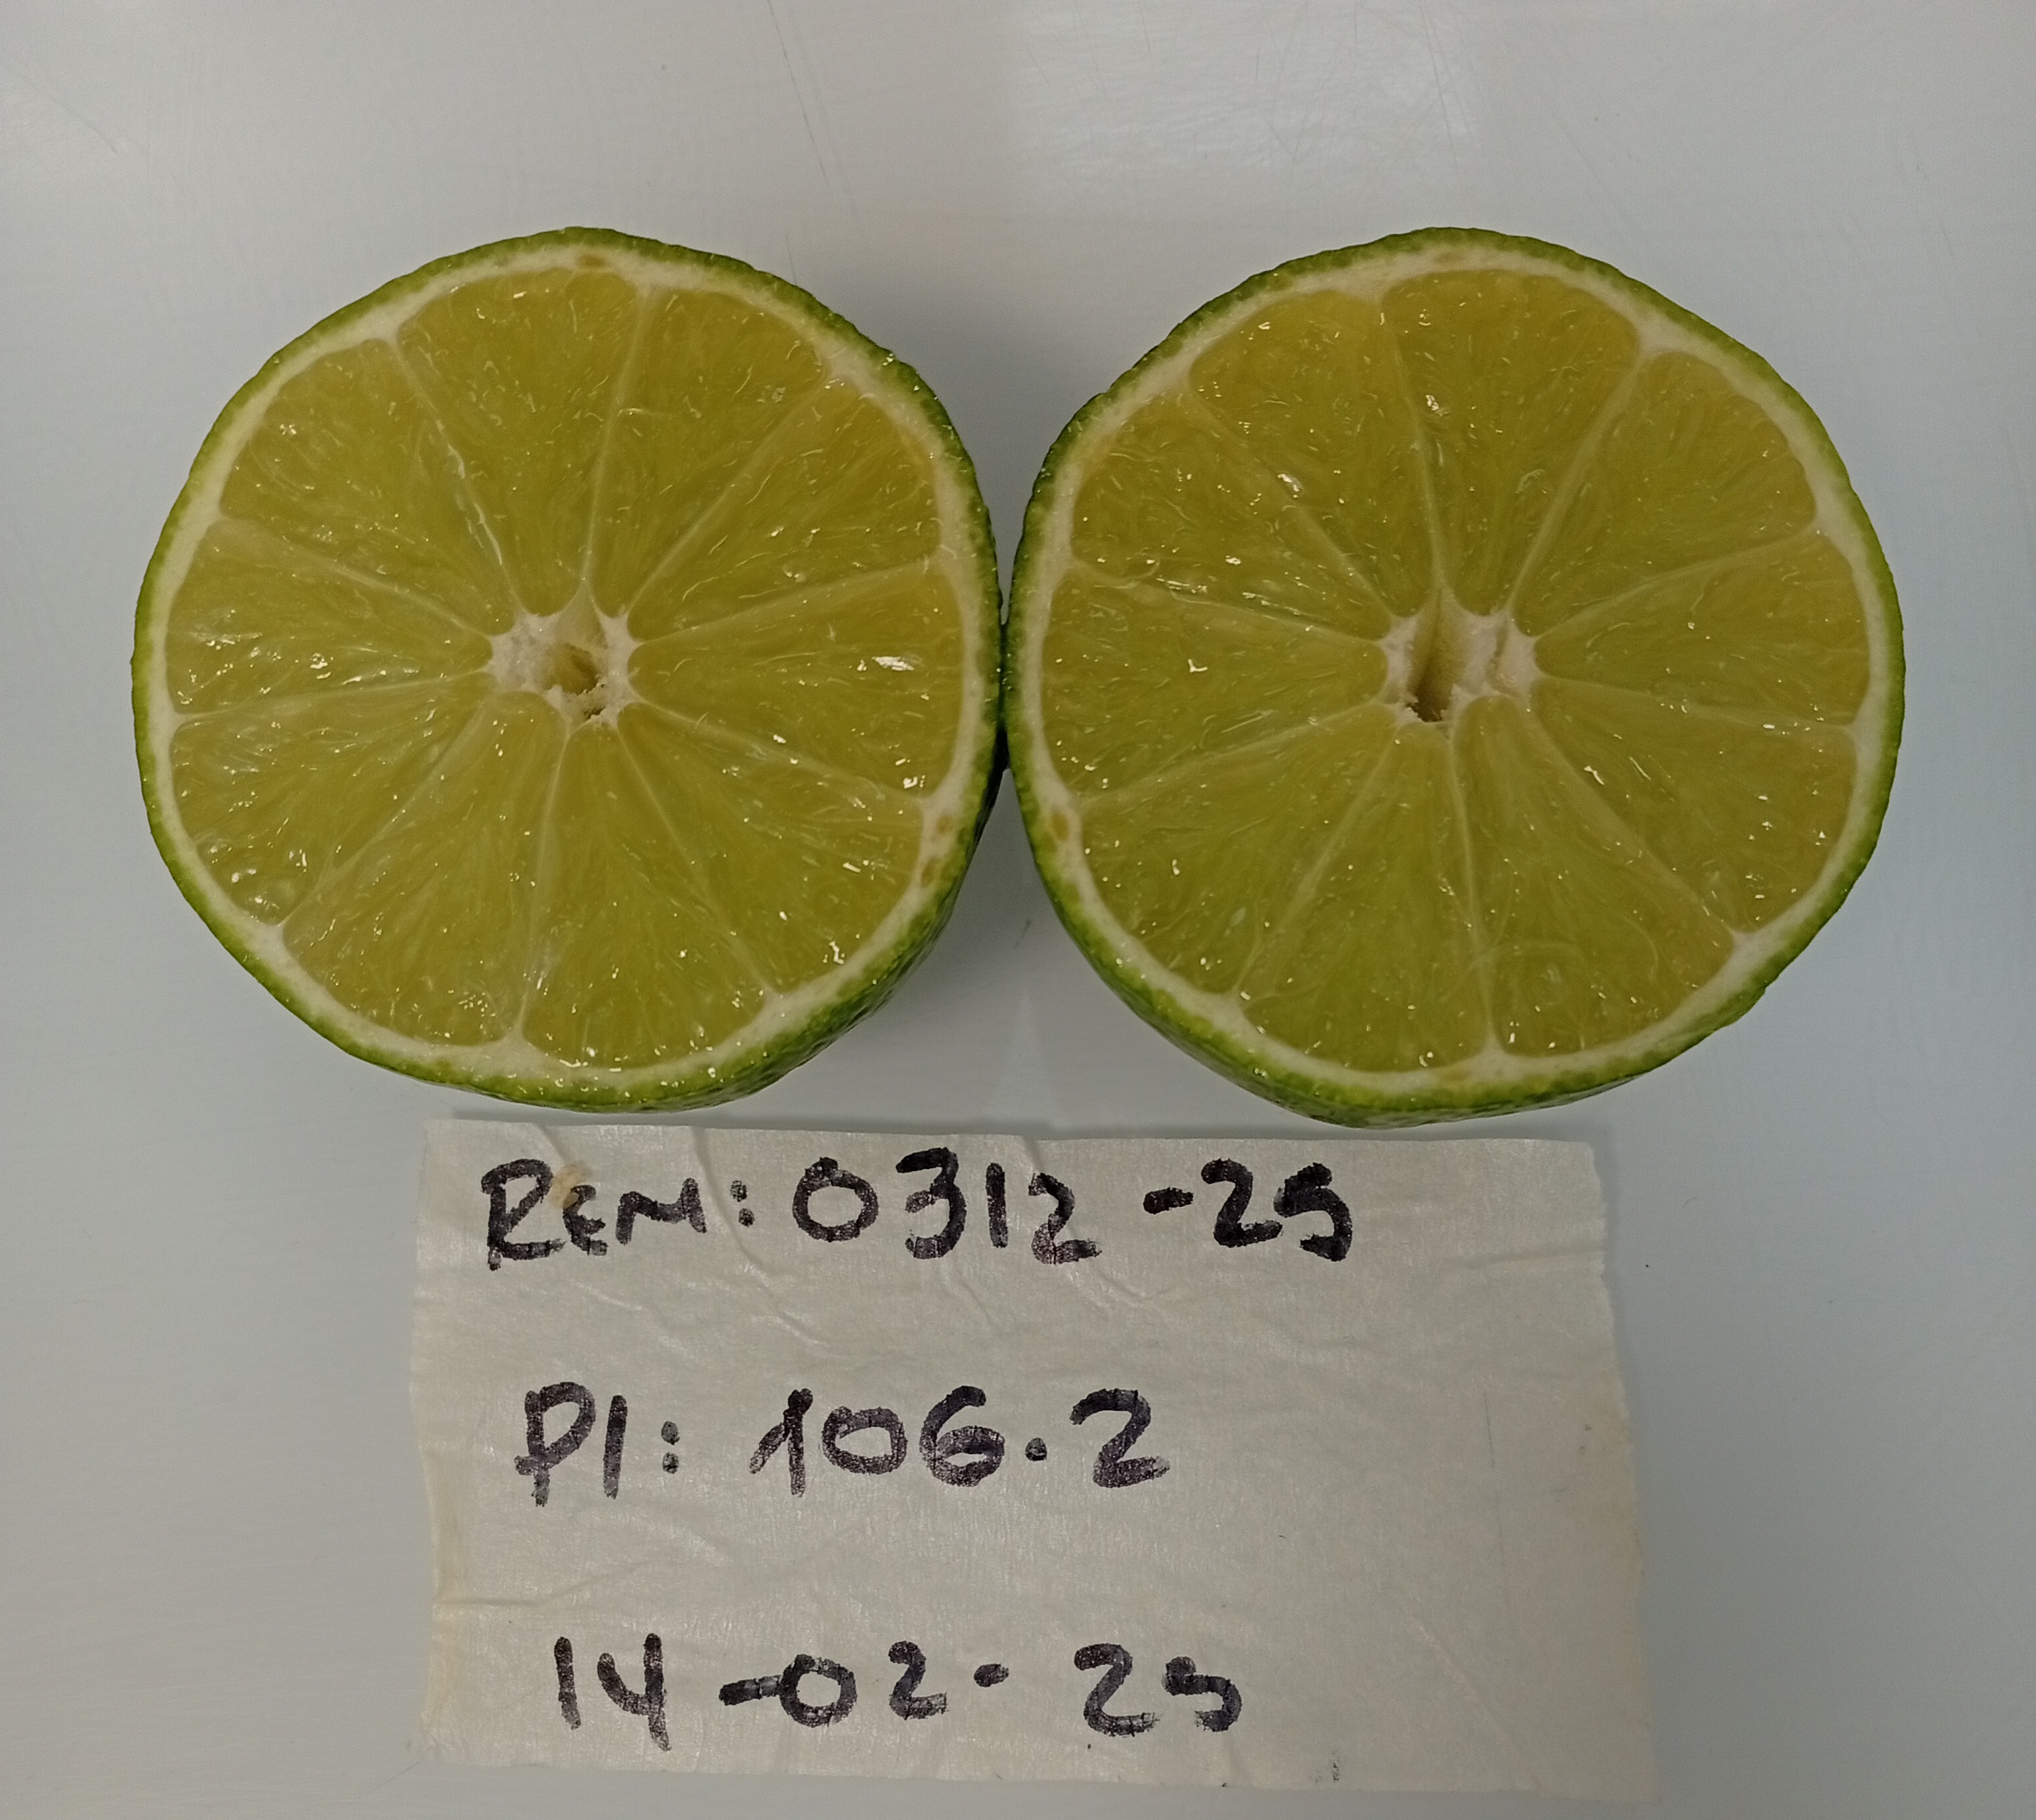 REM: 0312 -25
PI: 106.2
14-02-25